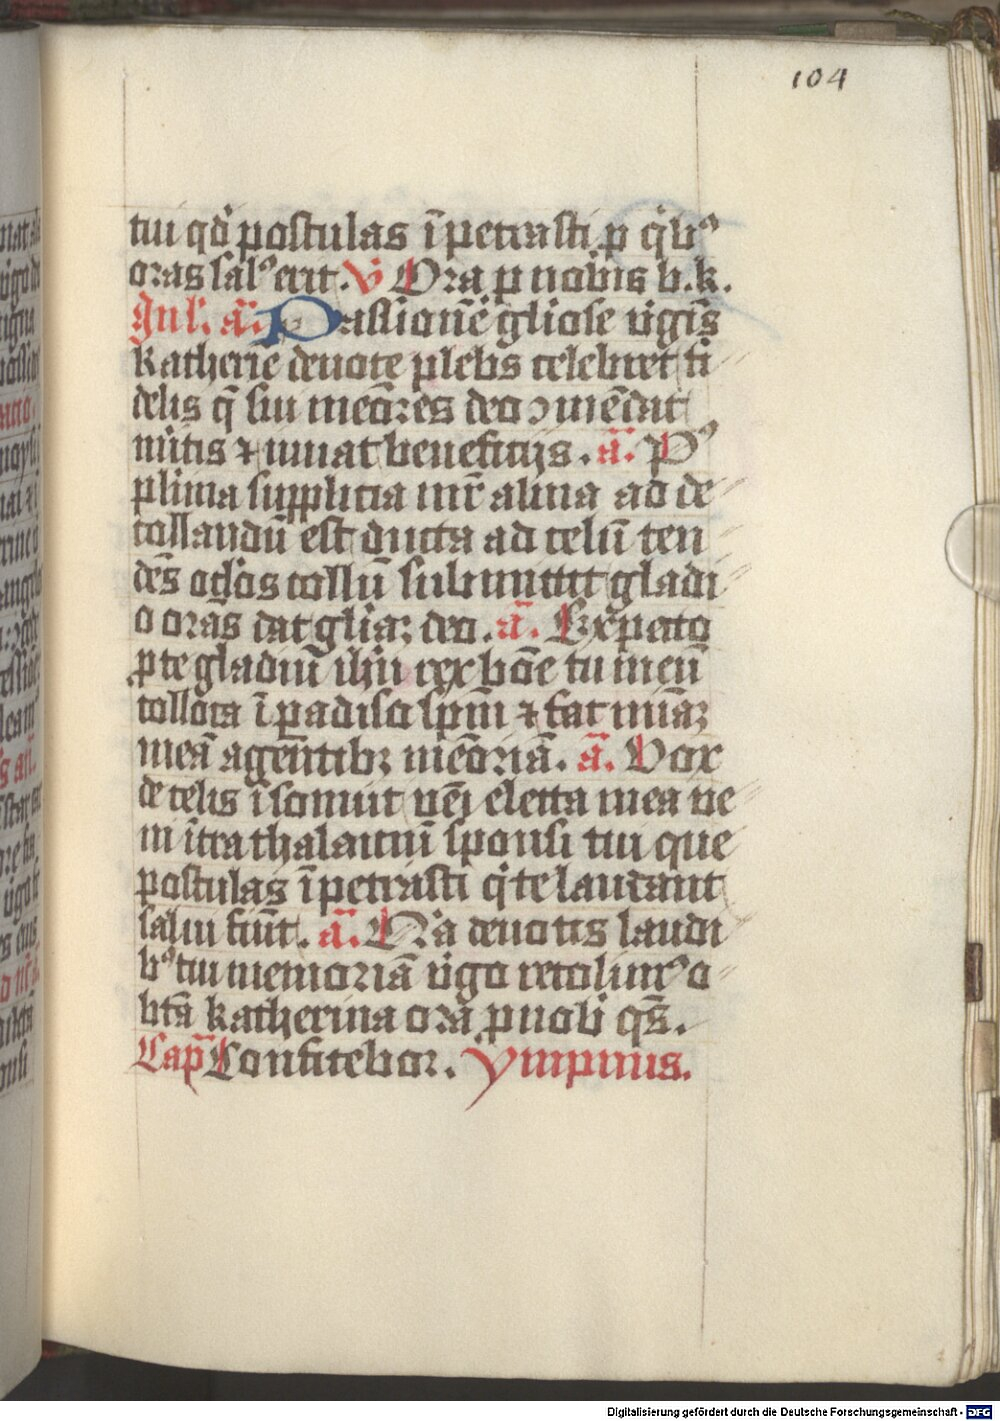 104
tui qd̾ postulas īpetrasti p̱ q̾bꝰ
oras salꝰ erit. V̾ Ora p nobis b. k.
In l. ā. Passionē gl̾iose v̾gīs
Katherīe deuote plebs celebret fi
delis q̄ sui meōres deo ꝯmēdat
mītis ⁊ iuuat beneficijs. ā. Pꝰ
pl̾ima supplicia mr̄ alma ad de
collandū est ducta ad celū ten
dēs oc̾los collū submittit gladi
o orās dat gl̾iaꝫ deo. ā. Exp̄ecto
ꝓ te gladiū ih̄u rex bōe tu meū
colloca ī padiso sp̄m ⁊ fac mīaꝫ
meā agentibꝫ meōriā. ā. Vox
de celis īsonuit ven̄i electa mea ve
ni ītra thalamū sponsi tui que
postulas īpetrasti q̾ te laudant
salui fiūt. ā. Q̾a deuotis laudi
bꝰ tui memoriā v̾go recolimꝰ o
btā katherina ora ꝓ nob̾ qs̄.
Cap̄ Confitebor. Ympnus.
Digitalisierung gefördert durch die Deutsche Forschungsgemeinschaft - DFG